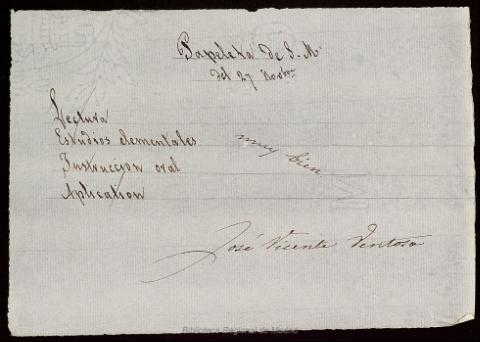 Papeleta de S. M.
del 27 Novbre
Lectura
Estudios elementales
Instruccion oral
Aplication
muy bien
José Vicente Ventosa
Biblioteca Regional de Madrid